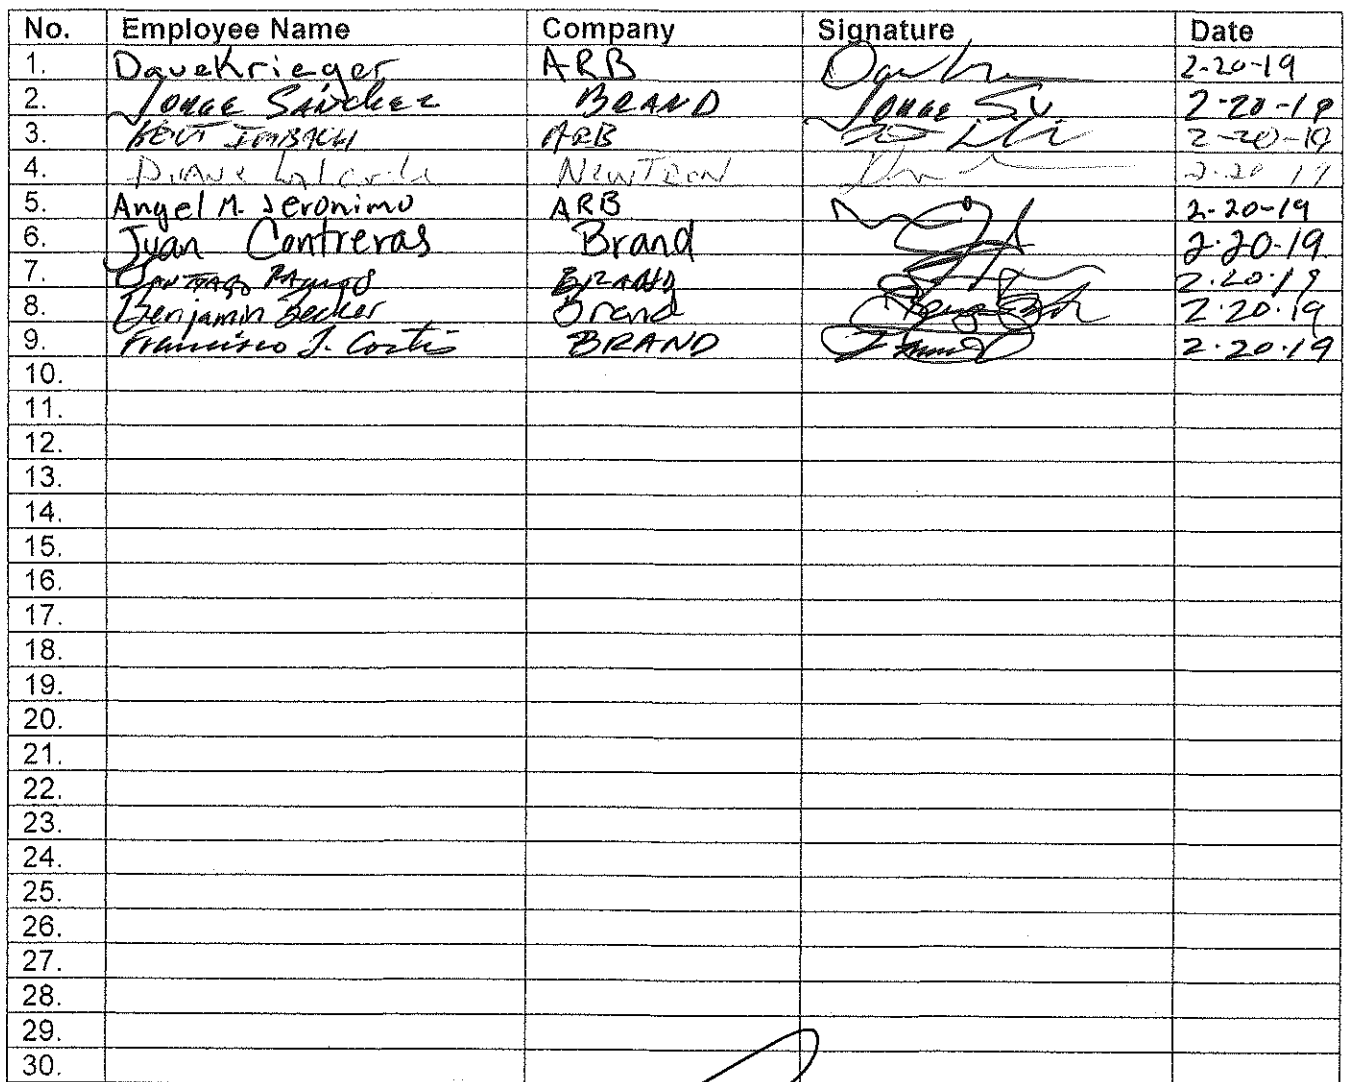 No. Employee Name Company Signature Date
1. Dave Krieger ARB 2-20-19
2. Jorge Sanchez BRAND Jorge S. 2-20-19
3. ARB 2-20-19
4. Duane NewTron 2-20-19
5. Angel M. Jeronimo ARB 2-20-19
6. Juan Contreras Brand 2-20-19
7. Santiago Ramos BRAND 2.20.19
8. Benjamin Becker Brand 2.20.19
9. Francisco J. BRAND 2.20.19
10.
11.
12.
13.
14.
15.
16.
17.
18.
19.
20.
21.
22.
23.
24.
25.
26.
27.
28.
29.
30.